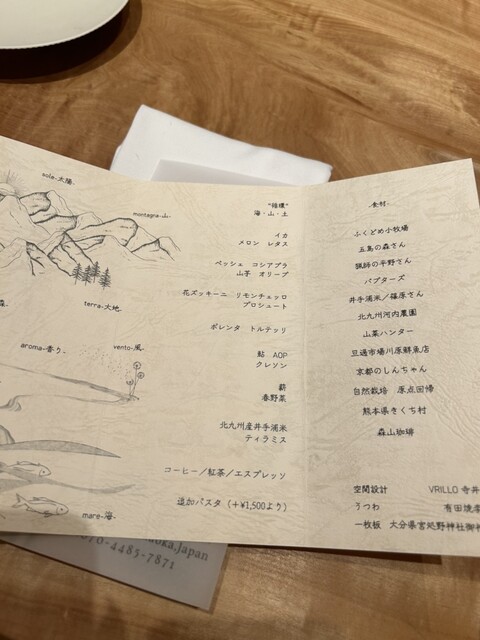 sole-太陽-
montagna-山-
森-
terra-大地-
aroma-香り-
vento-風-
mare-海-
"循環"
海・山・土
イカ
メロン レタス
ペッシェ コシアブラ
山芋 オリーブ
花ズッキーニ リモンチェッロ
プロシュート
ポレンタ トルテッリ
鮎 AOP
クレソン
薪
春野菜
北九州産井手浦米
ティラミス
コーヒー/紅茶/エスプレッソ
追加パスタ(+¥1,500より)
-食材-
ふくどめ小牧場
五島の森さん
猟師の平野さん
パブターズ
井手浦米/篠原さん
北九州河内農園
山菜ハンター
旦過市場川原鮮魚店
京都のしんちゃん
自然栽培 原点回帰
熊本県きくち村
森山珈琲
空間設計 VRILLO 寺井
うつわ 有田焼
一枚板 大分県宮処野神社御神
oka,Japan
070-4485-7871